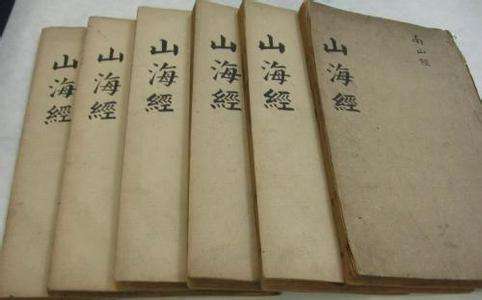 山海經
山海經
山海經
山海經
山海經
山海經
南山經